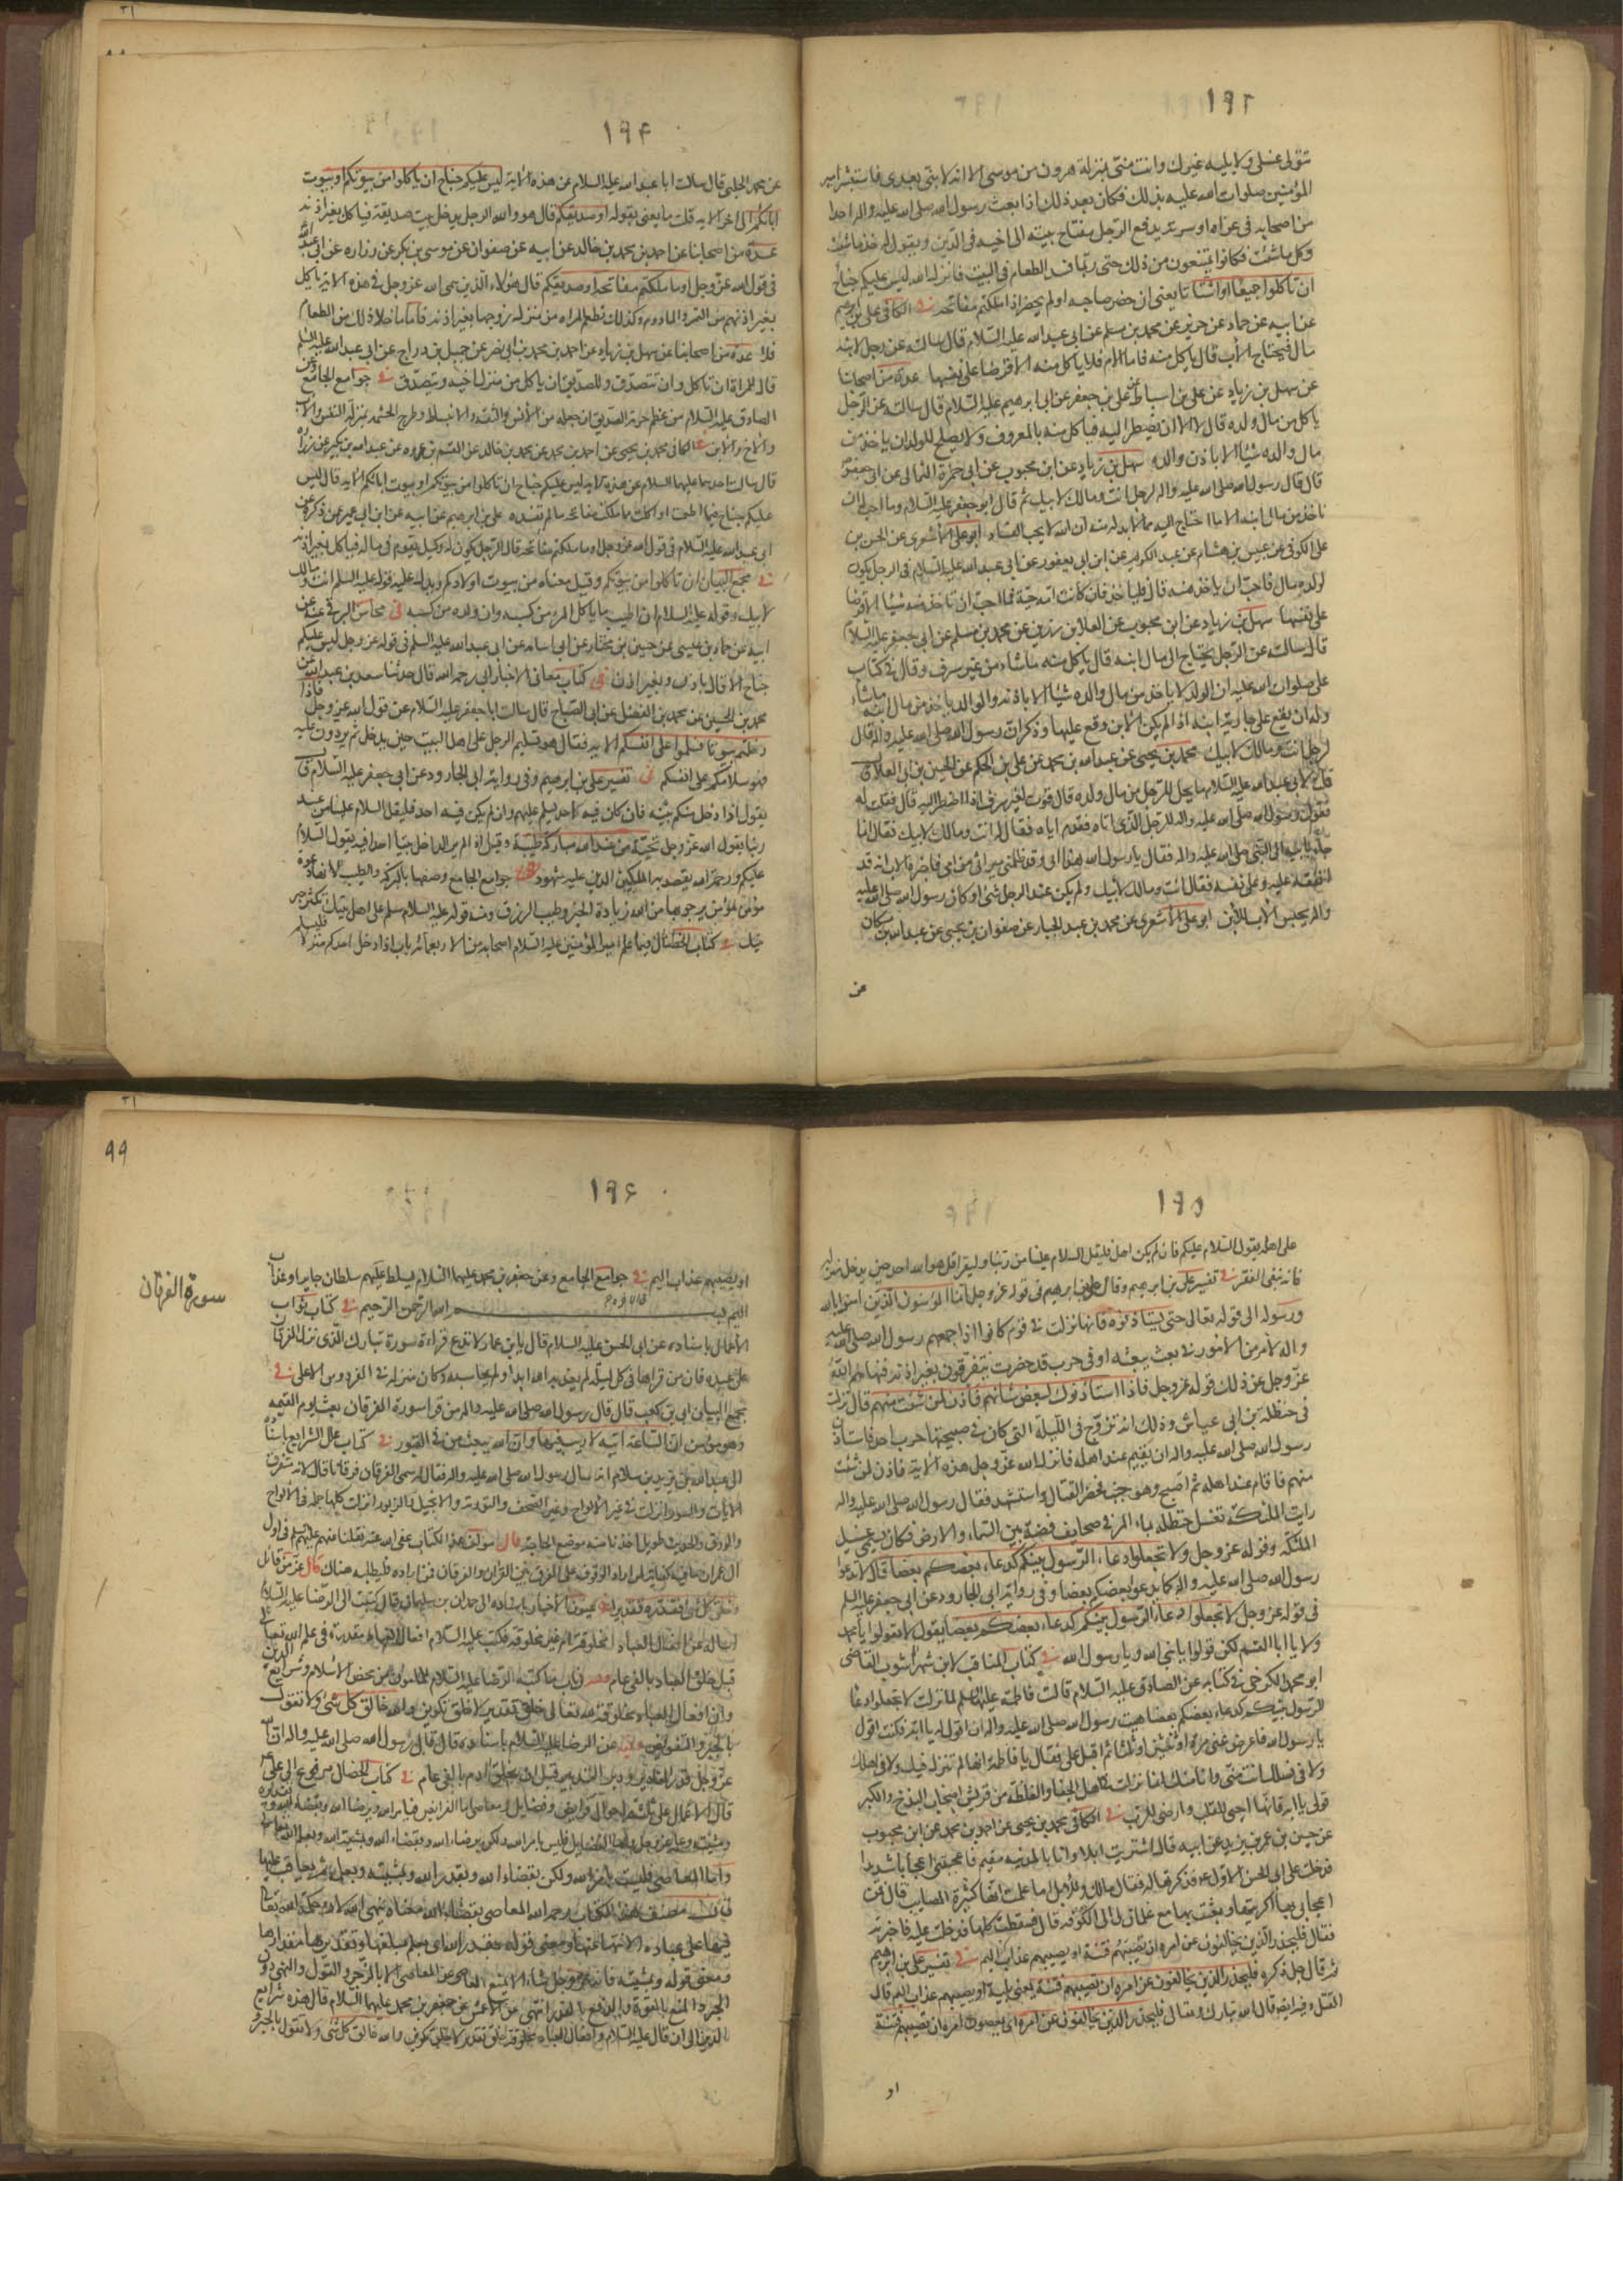 ۱۹۳
تتولى غسلى ولا يليه غيرك وانت منى بمنزلة هرون من موسى الا انه لا نبى بعدى فاستبشر امير
المؤمنين صلوات الله عليه بذلك فكان بعد ذلك اذا بعث رسول الله صلى الله عليه واله احدا
من اصحابه فى غزاه او سريه يدفع الرجل مفتاح بيته الى اخيه فى الدين ويقول له خذ ما شئت
وكل ما شئت فكانوا يمتنعون من ذلك حتى ربما فسد الطعام فى البيت فانزل الله ليس عليكم جناح
ان تاكلوا جميعًا او اشتاتا يعنى ان حضر صاحبه او لم يحضر اذا ملكتم مفاتحه فى الكافى على بن ابرهيم
عن ابيه عن حماد عن حريز عن محمد بن مسلم عن ابى عبد الله عليه السلام قال سالته عن رجل لابنه
مال فيحتاج الاب قال ياكل منه فاما الام فلا ياكل منه الا قرضا على نفسها عدة من اصحابنا
عن سهل بن زياد عن على بن اسباط عن على بن جعفر عن ابى ابرهيم عليه السلام قال سالته عن الرجل
ياكل من مال ولده قال لا الا ان يضطر اليه فياكل منه بالمعروف ولا يصلح للولد ان ياخذ من
مال والده شيئا الا باذن والده سهل بن زياد عن ابن محبوب عن ابى حمزة الثمالى عن ابى جعفر
قال قال رسول الله صلى الله عليه واله لرجل انت ومالك لابيك ثم قال ابو جعفر عليه السلام وما احب له ان
ياخذ من مال ابنه الا ما احتاج اليه مما لا بد له منه ان الله لا يحب الفساد ابو على الاشعرى عن الحسن بن
على الكوفى عن عبيس بن هشام عن عبد الكريم عن ابن ابى يعفور عن ابى عبد الله عليه السلام فى الرجل يكون
لولده مال فاحب ان ياخذ منه قال فلياخذ فان كانت امه حية فما احب ان تاخذ منه شيئا الا قرضا
على نفسها سهل بن زياد عن ابن محبوب عن العلا بن رزين عن محمد بن مسلم عن ابى جعفر عليه السلام
قال سالته عن الرجل يحتاج الى مال ابنه قال ياكل منه ما شاء من غير سرف وقال فى كتاب
على صلوات الله عليه ان الولد لا ياخذ من مال والده شيئا الا باذنه والوالد ياخذ من مال ابنه ما شاء
وله ان يقع على جارية ابنه اذا لم يكن الابن وقع عليها وذكر ان رسول الله صلى الله عليه واله قال
لرجل انت ومالك لابيك محمد بن يحيى عن عبد الله بن محمد عن على بن الحكم عن الحسين بن ابى العلا قال
قلت لابى عبد الله عليه السلام ما يحل للرجل من مال ولده قال قوت لغير سرف اذا اضطر اليه قال فقلت له
فقول رسول الله صلى الله عليه واله للرجل الذى اتاه فقدم اباه فقال له انت ومالك لابيك فقال انما
جاء بابيه الى النبى صلى الله عليه واله فقال يا رسول الله هذا ابى وقد ظلمنى ميراثى من امى فاخبره الاب انه قد
انفقه عليه وعلى نفسه فقال انت ومالك لابيك ولم يكن عند الرجل شئ او كان رسول الله صلى الله عليه
واله يحبس الاب للابن ابو على الاشعرى عن محمد بن عبد الجبار عن صفوان بن يحيى عن عبد الله بن مسكان
عن
۱۹۴
عن محمد الحلبى قال سالت ابا عبد الله عليه السلام عن هذه الاية ليس عليكم جناح ان ياكلوا من بيوتكم او بيوت
ابائكم الى اخر الايه قلت ما يعنى بقوله او صديقكم قال هو والله الرجل يدخل بيت صديقه فياكل بغير اذنه
عدة من اصحابنا عن احمد بن محمد بن خالد عن ابيه عن صفوان عن موسى بن بكر عن زراره عن ابى عبد الله
فى قول الله عز وجل او ما ملكتم مفاتحه او صديقكم قال هؤلاء الذين سمى الله عز وجل فى هذه الايه ياكل
بغير اذنهم من التمر والمادوم وكذلك تطعم المراه من منزل زوجها بغير اذنه فاما ما خلا ذلك من الطعام
فلا عدة من اصحابنا عن سهل بن زياد عن احمد بن محمد بن ابى نصر عن جميل بن دراج عن ابى عبد الله عليه السلم
قال للمراة ان تاكل وان تتصدق وللصديق ان ياكل من منزل اخيه ويتصدق فى جوامع الجامع وعن
الصادق عليه السلام من عظم حرمة الصديق ان جعله من الانس والثقه والانبساط وطرح الحشمه بمنزلة النفس والاب
والاخ والابن فى الكافى محمد بن يحيى عن احمد بن محمد عن محمد بن خالد عن القسم بن عروه عن عبد الله بن بكير عن زراره
قال سالت احدهما عليهما السلام عن هذه الايه ليس عليكم جناح ان تاكلوا من بيوتكم او بيوت ابائكم الايه قال ليس
عليكم جناح فيما اطعمت او اكلت مما ملكت مفاتحه ما لم تفسده على بن ابرهيم عن ابيه عن ابن ابى عمير عمن ذكره عن
ابى عبد الله عليه السلام فى قول الله عز وجل او ما ملكتم مفاتحه قال الرجل يكون له وكيل يقوم فى ماله فياكل بغير اذنه
فى مجمع البيان ان تاكلوا من بيوتكم وقيل معناه من بيوت اولادكم ويدل عليه قوله عليه السلم انت ومالك
لابيك وقوله عليه السلام ان اطيب ما ياكل المرء من كسبه وان ولده من كسبه فى محاسن البرقى عنه عن
ابيه عن حماد بن عيسى عن حسين بن مختار عن ابى اسامه عن ابى عبد الله عليه السلم فى قوله عز وجل ليس عليكم
جناح الا قال باذن وبغير اذن فى كتاب معانى الاخبار ابى رحمه الله قال حدثنا سعد بن عبد الله عن
محمد بن الحسين عن محمد بن الفضيل عن ابى الصباح قال سالت ابا جعفر عليه السلام عن قول الله عز وجل فاذا
دخلتم بيوتا فسلموا على انفسكم الايه فقال هو تسليم الرجل على اهل البيت حين يدخل ثم يردون عليه
فهو سلامكم على انفسكم فى تفسير على بن ابرهيم وفى رواية ابى الجارود عن ابى جعفر عليه السلام قال
يقول اذا دخل منكم بيته فان كان فيه احد يسلم عليهم وان لم يكن فيه احد فليقل السلام علينا من عند
ربنا يقول الله عز وجل تحية من عند الله مباركة طيبة وقيل اذا لم ير الداخل بيتا احدا فيه يقول السلام
عليكم ورحمة الله يقصد به الملكين الذين عليه شهود فى جوامع الجامع وصفها بالبركة والطيب لانها دعوة
مؤمن لمؤمن يرجو بها من الله زيادة الخير وطيب الرزق ومنه قوله عليه السلام سلم على اهل بيتك يكثر خير
بيتك فى كتاب الخصال فيما علم امير المؤمنين عليه السلام اصحابه من الاربعمائه باب اذا دخل احدكم منزله فليسلم
۱۹۵
على اهله يقول السلام عليكم فان لم يكن اهل فليقل السلام علينا من ربنا وليقرا قل هو الله احد حين يدخل منزله
فانه ينفى الفقر فى تفسير على بن ابرهيم وقال على بن ابرهيم فى قوله عز وجل انما المؤمنون الذين امنوا بالله
ورسوله الى قوله تعالى حتى يستاذنوه فانها نزلت فى قوم كانوا اذا جمعهم رسول الله صلى الله عليه
واله لامر من الامور فى بعث يبعثه او فى حرب قد حضرت يتفرقون بغير اذنه فنهاهم الله
عز وجل عن ذلك قوله عز وجل فاذا استاذنوك لبعض شانهم فاذن لمن شئت منهم قال نزلت
فى حنظلة بن ابى عياش وذلك انه تزوج فى الليلة التى كان فى صبيحتها حرب احد فاستاذن
رسول الله صلى الله عليه واله ان يقيم عند اهله فانزل الله عز وجل هذه الاية فاذن لمن شئت
منهم فاقام عند اهله ثم اصبح وهو جنب فحضر القتال واستشهد فقال رسول الله صلى الله عليه واله
رايت الملئكة تغسل حنظلة بماء المزن فى صحايف فضة بين السماء والارض فكان يسمى غسيل
الملئكة وقوله عز وجل ولا تجعلوا دعاء الرسول بينكم كدعاء بعضكم بعضا قال لا تدعوا
رسول الله صلى الله عليه واله كما يدعو بعضكم بعضا وفى رواية ابى الجارود عن ابى جعفر عليه السلم
فى قوله عز وجل لا تجعلوا دعاء الرسول بينكم كدعاء بعضكم بعضا يقول لا تقولوا يا محمد
ولا يا ابا القسم لكن قولوا يا نبى الله ويا رسول الله فى كتاب المناقب لابن شهراشوب القاضى
ابو محمد الكرخى فى كتابه عن الصادق عليه السلام قالت فاطمة عليها السلم لما نزلت لا تجعلوا دعا
الرسول بينكم كدعاء بعضكم بعضا هبت رسول الله صلى الله عليه واله ان اقول له يا ابه فكنت اقول
يا رسول الله فاعرض عنى مرة او ثنتين او ثلثا ثم اقبل على فقال يا فاطمة انها لم تنزل فيك ولا فى اهلك
ولا فى نسلك انت منى وانا منك انما نزلت فى اهل الجفا والغلظة من قريش اصحاب البذخ والكبر
قولى يا ابه فانها احيى للقلب وارضى للرب فى الكافى محمد بن يحيى عن احمد بن محمد عن ابن محبوب
عن حسين بن عمر بن يزيد عن ابيه قال اشتريت ابلا وانا بالمدينه مقيم فاعجبتنى اعجابا شديدا
فدخلت على ابى الحسن الاول عه فذكرتها له فقال مالك وللابل اما علمت انها كثيرة المصايب قال فمن
اعجابى بها اكريتها وبعثت بها مع غلمان لى الى الكوفه قال فسقطت كلها فدخلت عليه فاخبرته
فقال فليحذر الذين يخالفون عن امره ان تصيبهم فتنة او يصيبهم عذاب اليم فى تفسير على بن ابرهيم
ثم قال جل ذكره فليحذر الذين يخالفون عن امره ان تصيبهم فتنة يعنى بلية او يصيبهم عذاب اليم قال
القتل وفيه ايضا قال الله تبارك وتعالى فليحذر الذين يخالفون عن امره اى يعصون امره ان تصيبهم فتنة
او
۹۹
۱۹۶
سورة الفرقان
او يصيبهم عذاب اليم فى جوامع الجامع وعن جعفر بن محمد عليهما السلام يسلط عليهم سلطان جاير او عذاب
اليم بسم الله الرحمن الرحيم فى كتاب ثواب
الاعمال باسناده عن ابى الحسن عليه السلام قال يا بن عمار لا تدع قراءة سورة تبارك الذى نزل الفرقان
على عبده فان من قراها فى كل ليلة لم يعذبه الله ابدا ولم يحاسبه وكان منزله فى الفردوس الاعلى فى
مجمع البيان ابى بن كعب قال قال رسول الله صلى الله عليه واله من قرا سورة الفرقان بعث يوم القيمه
وهو مؤمن ان الساعة اتيه لا ريب فيها وان الله يبعث من فى القبور فى كتاب علل الشرايع باسناده
الى عبد الله بن يزيد بن سلام انه سال رسول الله صلى الله عليه واله فقال لم سمى الفرقان فرقانا قال لانه متفرق
الايات والسور انزلت فى غير الالواح وغير الصحف والتورية والانجيل والزبور انزلت كلها جملة فى الالواح
والورق والحديث طويل اخذنا منه موضع الحاجة قال مؤلف هذا الكتاب عفى الله عنه نقلنا عنهم عليهم السلم فى اول
ال عمران ما فيه كفاية لمن اراد الوقوف على الفرق بين القران والفرقان فمن اراده فليطلبه هناك قال عز من قائل
وخلق كل شئ فقدره تقديرا فى عيون الاخبار باسناده الى حمدان بن سليمان قال كتبت الى الرضا عليه السلام
اساله عن افعال العباد امخلوقة ام غير مخلوقه فكتب عليه السلام افعال العباد مقدرة فى علم الله تعالى
قبل خلق العباد بالفى عام وفى باب ما كتبه الرضا عليه السلام للمامون من محض الاسلام وشرايع الدين
وان افعال العباد مخلوقة لله تعالى خلق تقدير لا خلق تكوين والله خالق كل شئ ولا نقول
بالجبر والتفويض وفيه عن الرضا عليه السلام باسناده قال قال رسول الله صلى الله عليه واله ان الله
عز وجل قدر المقادير ودبر التدابير قبل ان يخلق ادم بالفى عام فى كتاب الخصال مرفوع الى على عه
قال الاعمال على ثلثة احوال فرايض وفضايل ومعاصى اما الفرايض فبامر الله وبرضا الله وبقضاء الله وتقديره
ومشيته وعلمه عز وجل واما الفضايل فليس بامر الله ولكن برضاء الله وبقضاء الله وبمشية الله وبعلم الله
واما المعاصى فليست بامر الله ولكن بقضاء الله وبقدر الله وبمشيته وبعلمه ثم يعاقب عليها
قال مصنف هذا الكتاب رحمه الله المعاصى بقضاء الله معناه بنهى الله لان حكم الله تعالى
فيها على عباده الانتهاء عنها ومعنى قوله بقدر الله اى بعلم بمبلغها وتقديرها مقدارها
ومعنى قوله وبمشيته فانه عز وجل شاء الا يمنع العاصى عن المعاصى الا بالزجر والقول والنهى دون
الجبر والمنع بالقوة والدفع بالقدر انتهى عن الاعمش عن جعفر بن محمد عليهما السلام قال هذه شرايع
الدين الى ان قال عليه السلام وافعال العباد مخلوقة خلق تقدير لا خلق تكوين والله خالق كل شئ ولا تقول بالجبر